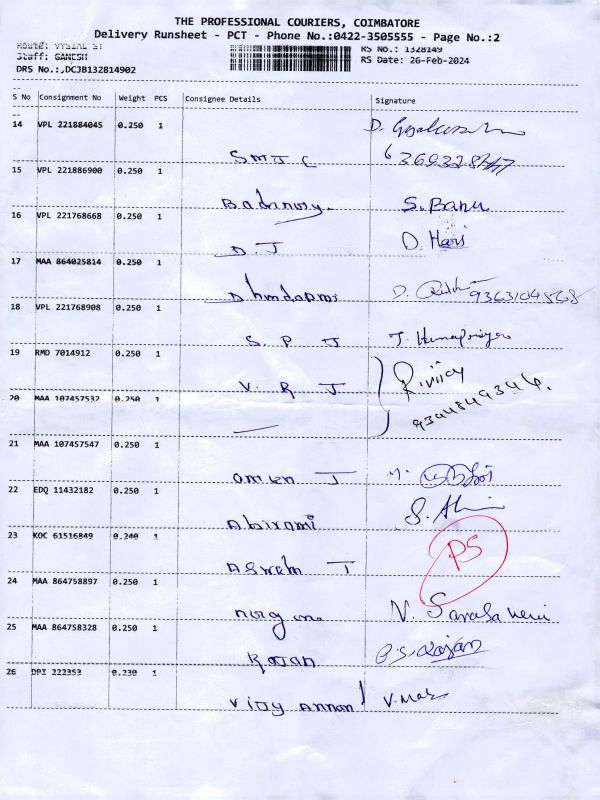 THE PROFESSIONAL COURIERS, COIMBATORE
Delivery Runsheet - PCT - Phone No.:0422-3505555 - Page No.:2
Route: VYSIAL ST
Staff: GANESH
DRS No.:,DCJB132814902
RS No.: 1328149
RS Date: 26-Feb-2024
S No Consignment No Weight PCS Consignee Details Signature
14 VPL 221884045 0.250 1
SMJC
15 VPL 221886900 0.250 1
S. Banu
16 VPL 221768668 0.250 1
D. J D. Hari
17 MAA 864025814 0.250 1
D. 9363104568
18 VPL 221768908 0.250 1
S P J J. Hemapriya
19 RMD 7014912 0.250 1
V. R J
20 MAA 107457532 0.250 1
21 MAA 107457547 0.250 1
J M.
22 EDQ 11432182 0.250 1
Abirami S.
23 KOC 61516849 0.240 1
J PS
24 MAA 864758897 0.250 1
V.
25 MAA 864758328 0.250 1
Rajan
26 DPI 222353 0.230 1
Vijay V.